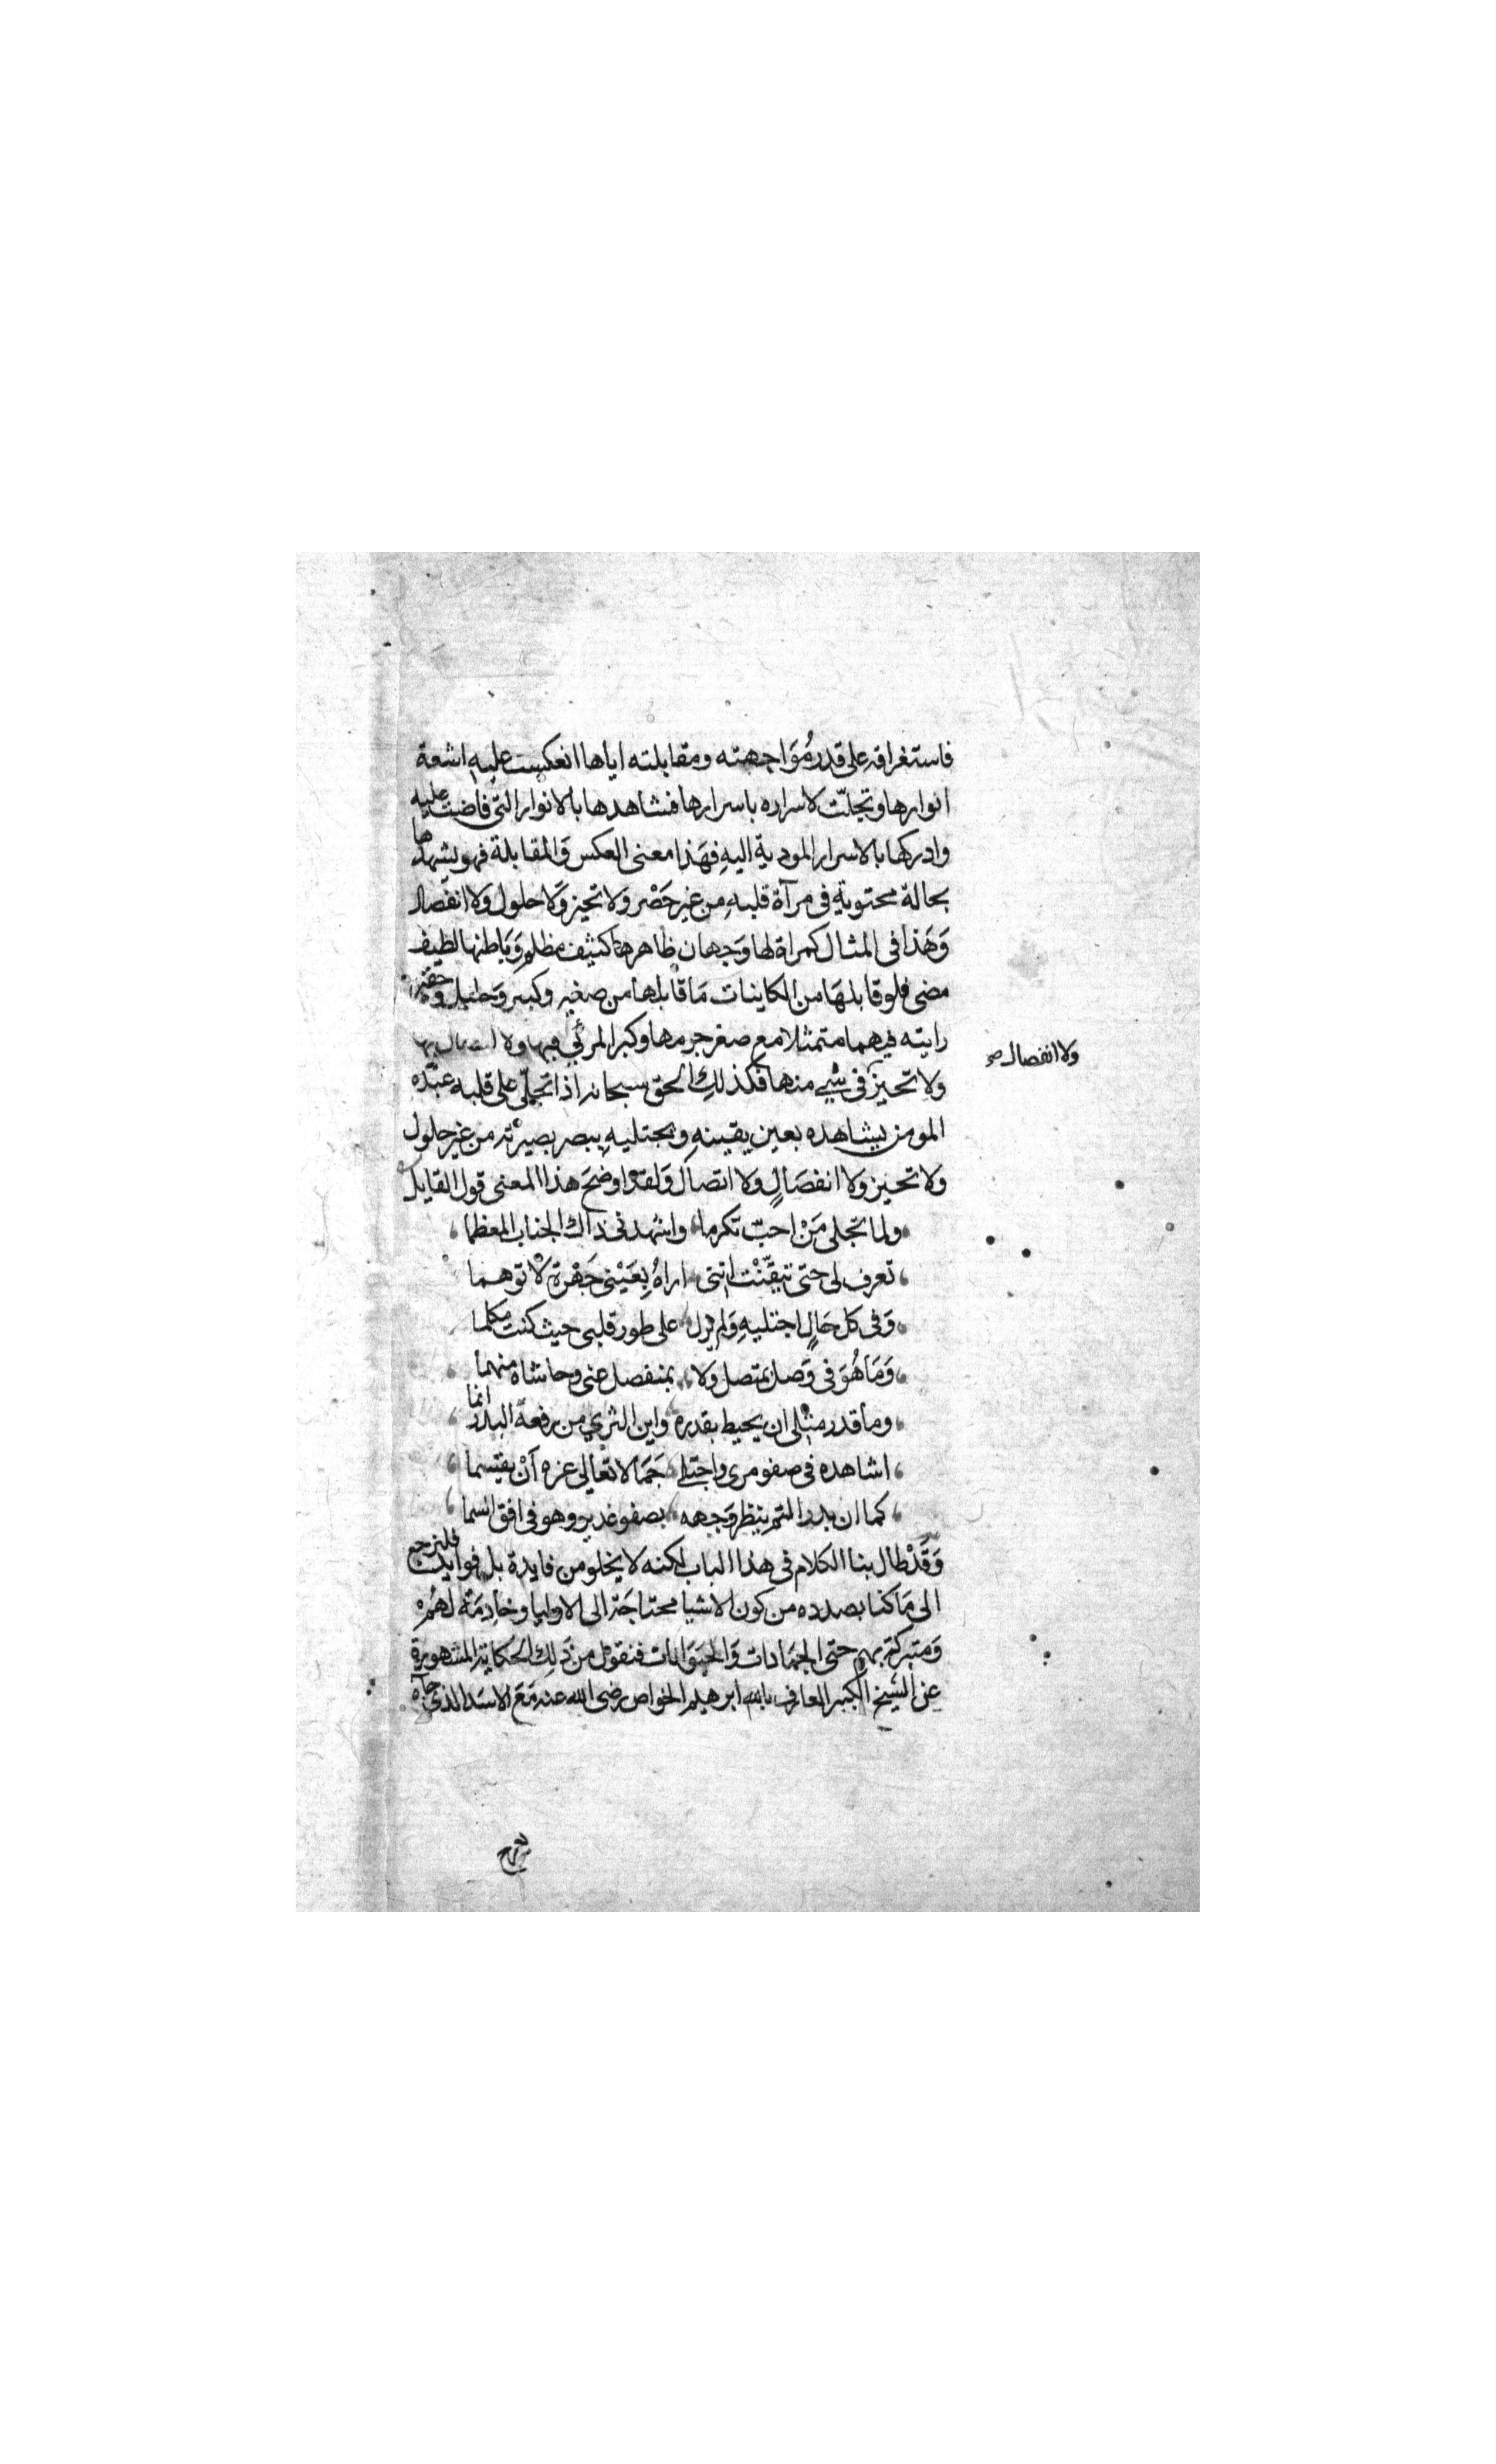 فاستغراقه على قدر مُوَاجهته ومقابلته اياها انعكست عليه اشعة
انوارها وتجلّت لاسراره باسرارها فشاهدها بالانوار التى فاضت عليه
وادركها بالاسرار المودية اليهِ فهَذا معنى العكس وَالمقابلة فهو يشهدها
بحالة محتوية فى مرآة قلبهِ من غير حَصْر ولا تحيز وَلا حلول ولا انفصال
وَهَذا فى المثال كمراة لها وَجهان ظاهرها كثيف مظلم وَبَاطنها لطيف
مضى فلو قابلهَا من الكاينات مَا قابلها من صغير وكبير وَجليل وحقير
رايته فيهما متمثلا مع صغر جرمها وكبر المرئي فيها ولا اتصال بها
ولا انفصال صح
ولا تحيز فى شيء منها فكذلك الحق سبحانه اذا تجلّى على قلبه عبده
المومن يشاهده بعين يقينهِ ويجتليهِ ببصر بصيرته من غير حلول
ولا تحيز ولا انفصَالٍ ولا اتصال وَلقد اوضحَ هذا المعنى قول القايل
ولما تجلى مَنْ احبّ تكرما واشهدنى ذاك الجناب المعظما
تعرف لى حتى تيقّنْت اننى اراهُ بِعَيْنى جَهْرة لا توهما
وَفى كل حَالٍ اجتليهِ وَلم يزل على طور قلبى حيث كنت مكلما
وَمَا هُوَ فى وَصل بمتصل ولا بمنفصل عنى وحاشاه منهما
وما قدر مثلى ان يحيط بقدره واين الثري من رفعة البدر انما
اشاهده فى صفو سرى واجتلى جَمَالا تعالى عزه اَنْ يقسما
كما ان بدر التم ينظر وَجهه بصفو غدير وهو فى افق السما
وَقَدْ طال بنا الكلام فى هذا الباب لكنه لا يخلو من فايدة بل فوايد فلنرجع
الى مَا كنا بصدده من كون الاشيا محتاجَة الى الاوليا وخادِمَة لهُم
وَمتبركة بهم حتى الجمَادات وَالحيَوَانات فنقول من ذَلك الحكاية المشهورة
عن الشيخ الكبير العارف بالله ابرهيم الخواص رضى الله عنه مَعَ الاسَد الذى جآه